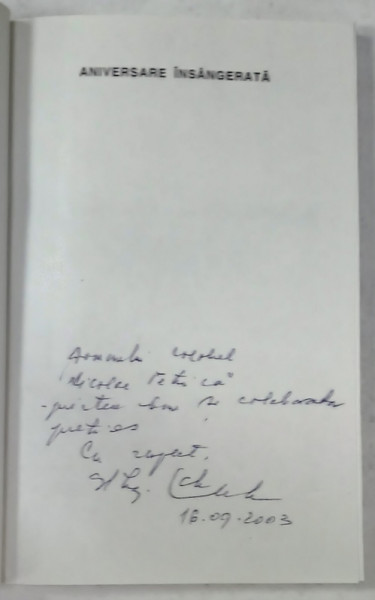 ANIVERSARE ÎNSÂNGERATĂ
Domnului colonel
"Nicolae Petrică"
- prieten bun și colaborator
prețios
Cu respect,
16.09.2003